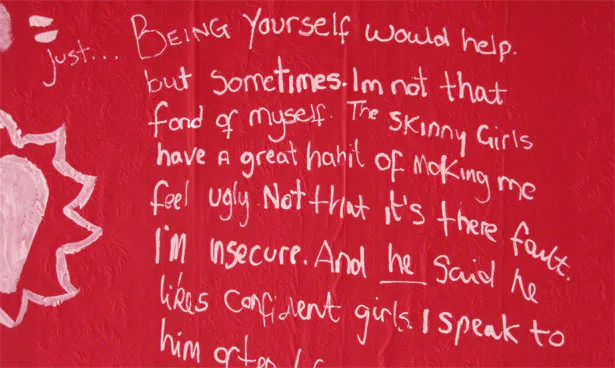 just... BEING Yourself would help.
but sometimes. Im not that
fond of myself. The SKINNY Girls
have A great habit of MaKing me
feel ugly Not that it's there fault.
I'm insecure. And he said he
likes confident girls. I speak to
him often